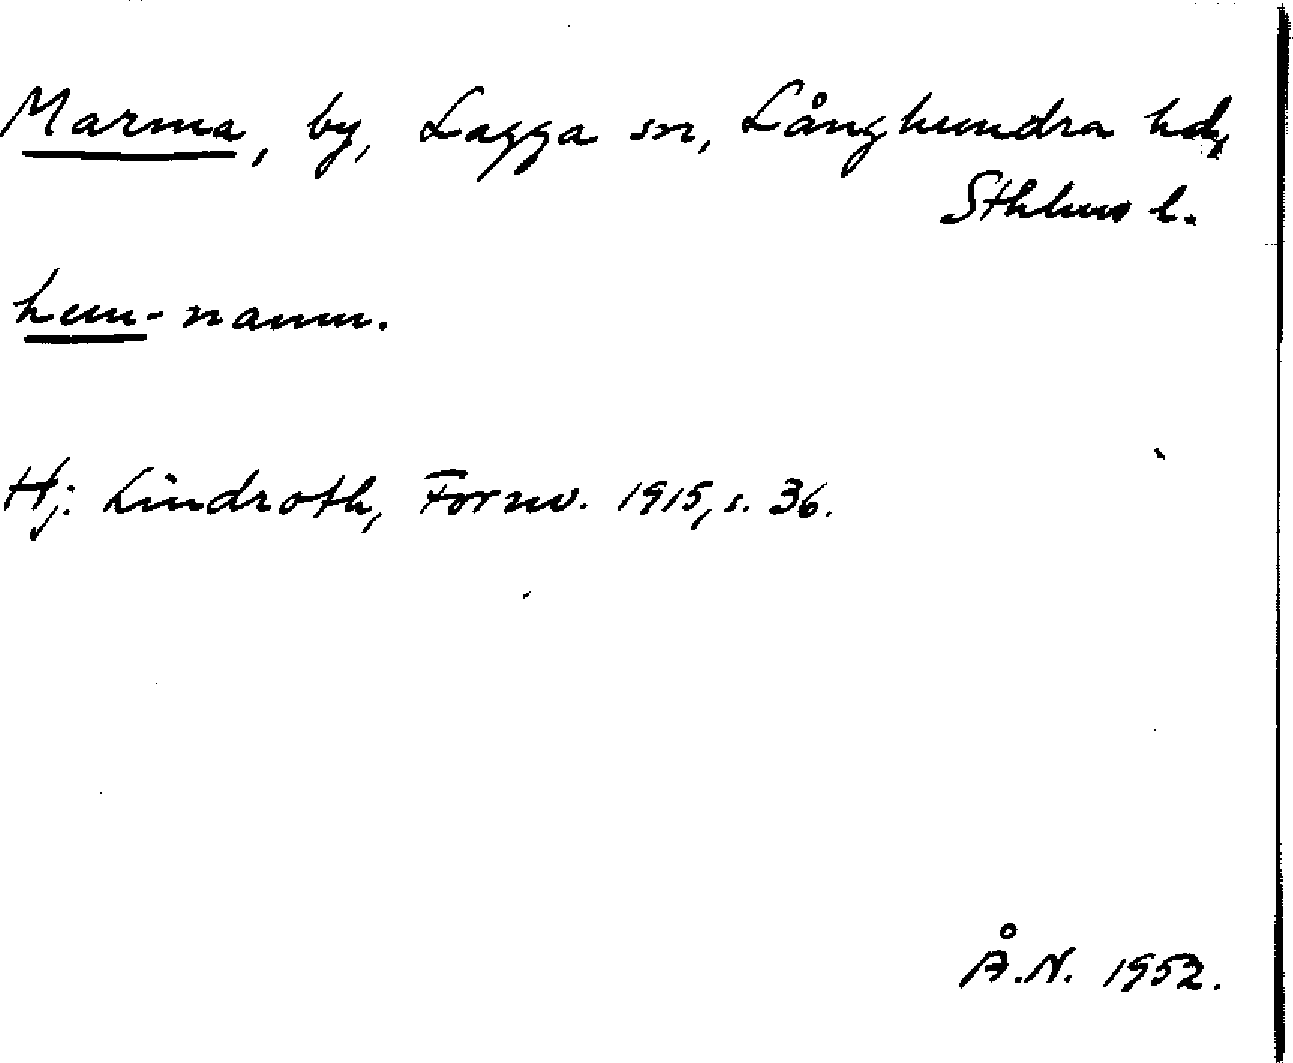 Marma, by, Lagga sn, Långhundra hd,
Sthlms l.
hem-namn.
Hj. Lindroth, Fornv. 1915, s. 36.
Å.N. 1952.